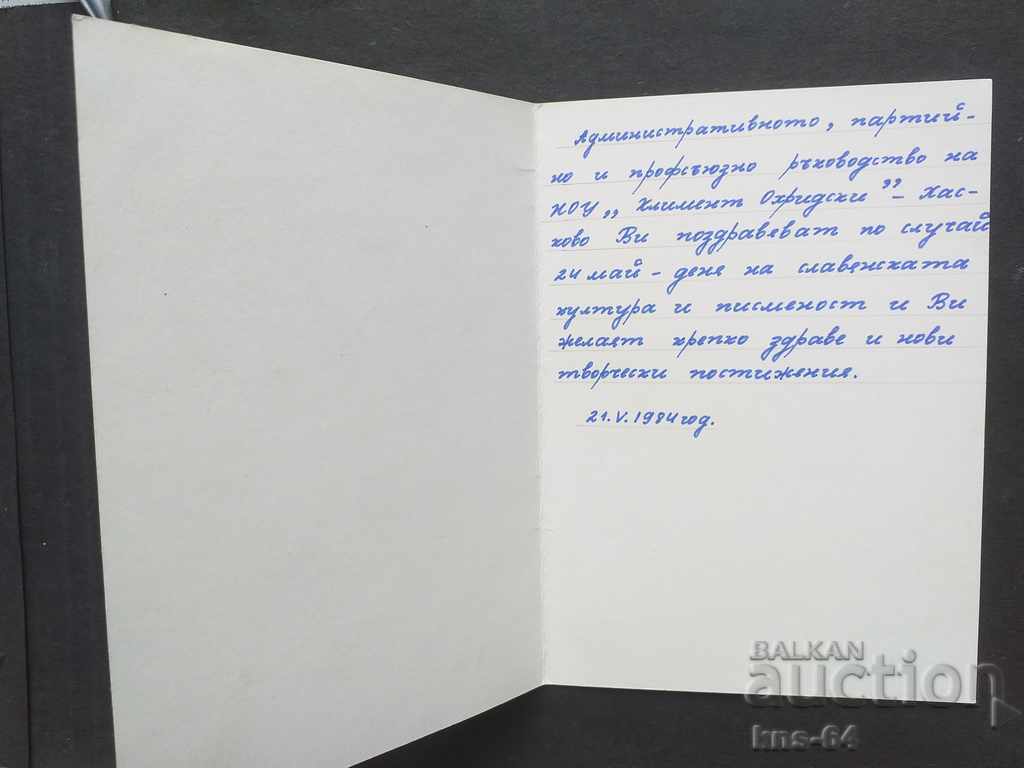 Административното, партий-
но и профсъюзно ръководство на
НОУ „Климент Охридски” – Хас-
ково Ви поздравеват по случай
24 май – дене на славенската
култура и писменост и Ви
желаят крепко здраве и нови
творчески постижения.
21.V.1984 год.
BALKAN
auction
kns-64